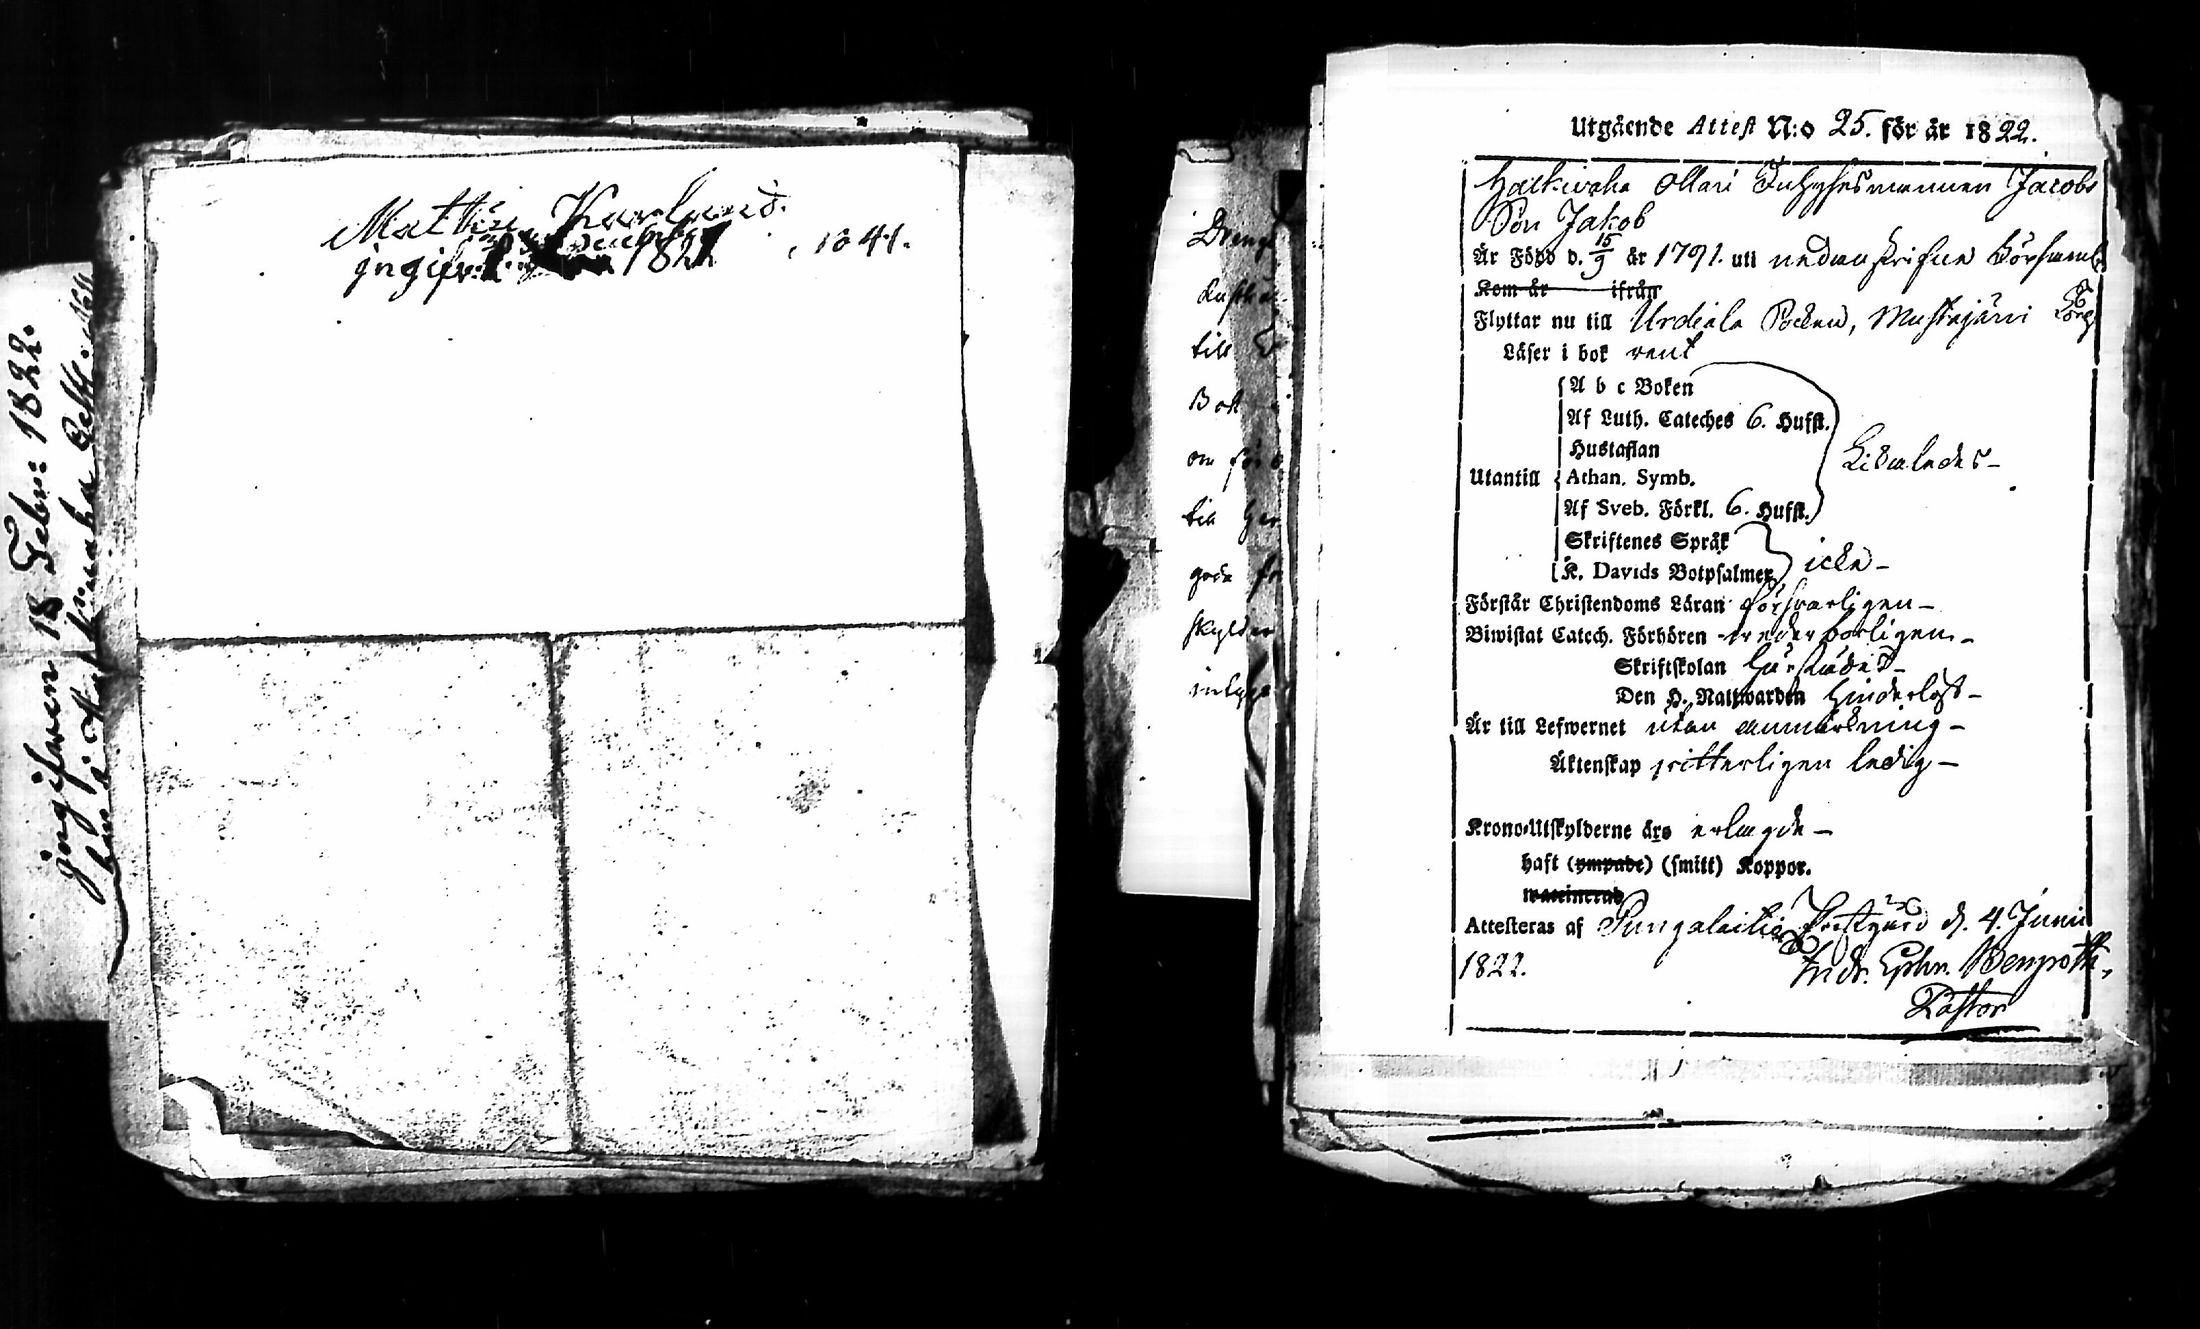 jngifven 18 Febr: 1822.
Matths Karlund
jngifv. 1822 , 1041.
Dreng
till
Bok
om för
till
goda
skylder
intyga
Utgående Attest N:o 25. för år 1822.
Halkivaha Ollari Inhyhsmannen Jacobs
Son Jakob
Är Född d. 15/9 år 1791. uti nedanskrifne Församl.
Kom år ifrån
Flyttar nu till Urdiala Socken, Mustajärvi
Läser i bok rent
A b c Boken
Af Luth. Cateches 6. Hufst.
Hustaflan
Utantill Athan. Symb. Likaledes -
Af Sveb. Förkl. 6. Hufst.
Skriftenes Språk
K. Davids Botpsalmer icke -
Förstår Christendoms Läran försvarligen -
Biwistat Catech. Förhören - trederborligen -
Skriftskolan
Den H. Nattwarden hinderlöst -
Är till Lefwernet utan anmärkning -
Äktenskap witterligen ledig -
Krono-Utskylderne äro erlagde -
haft (ympade) (smitt) Koppor.
waccinerad
Attesteras af Pungalaitio Prestgård d. 4. Junii
1822. Andr. Ephr. Bengroth,
Pastor